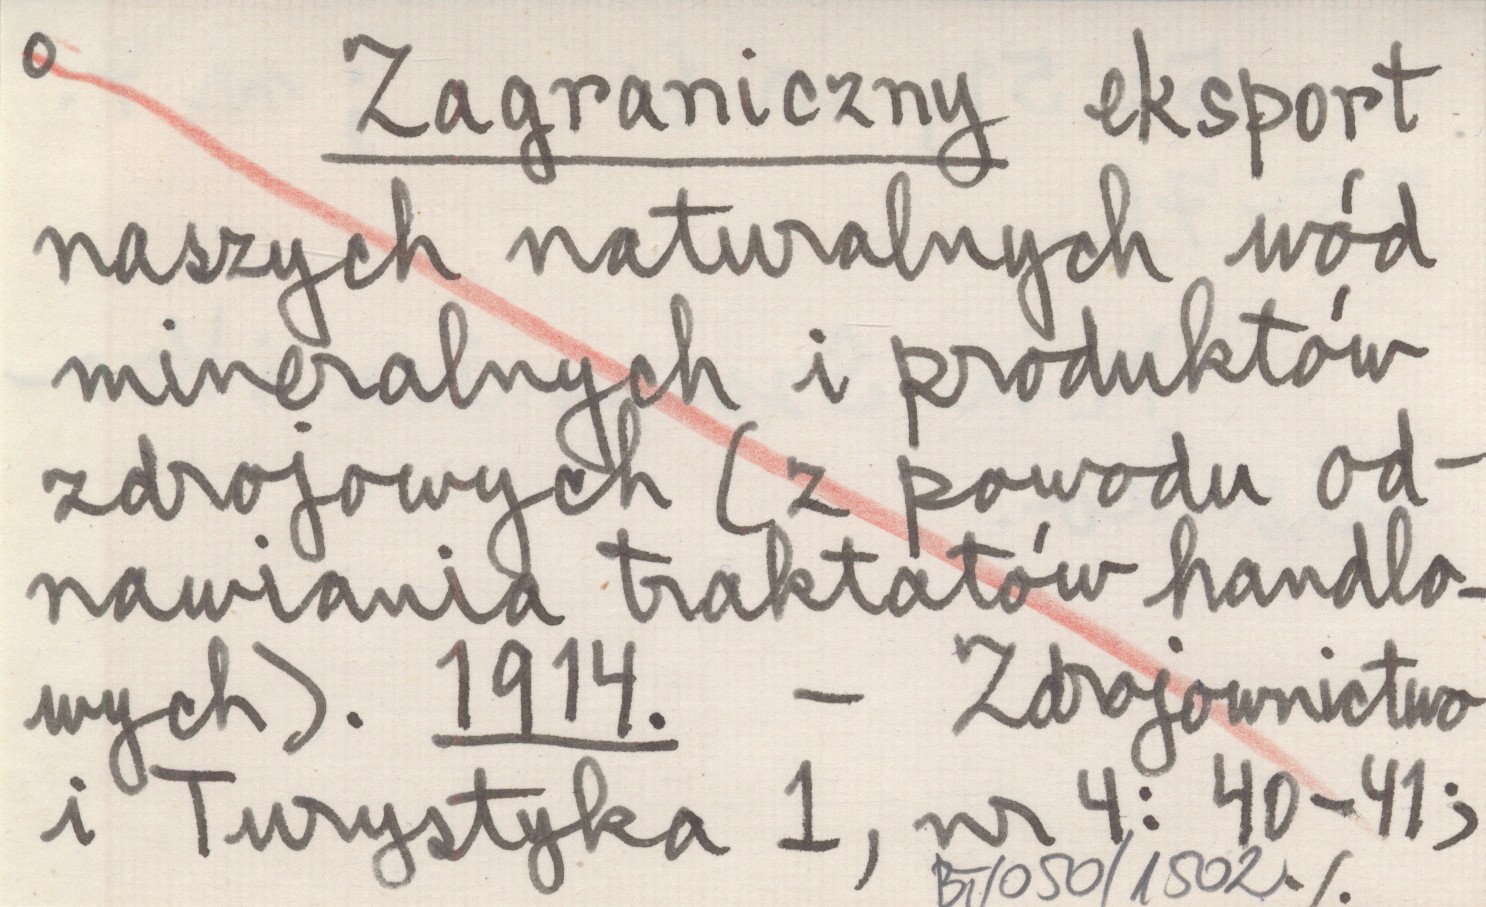 o Zagraniczny eksport
naszych naturalnych wód
mineralnych i produktów
zdrojowych (z powodu od-
nawiania traktatów handlo-
wych). 1914. – Zdrojownictwo
i Turystyka 1, nr 4: 40–41;
BT/050/1502 ./.